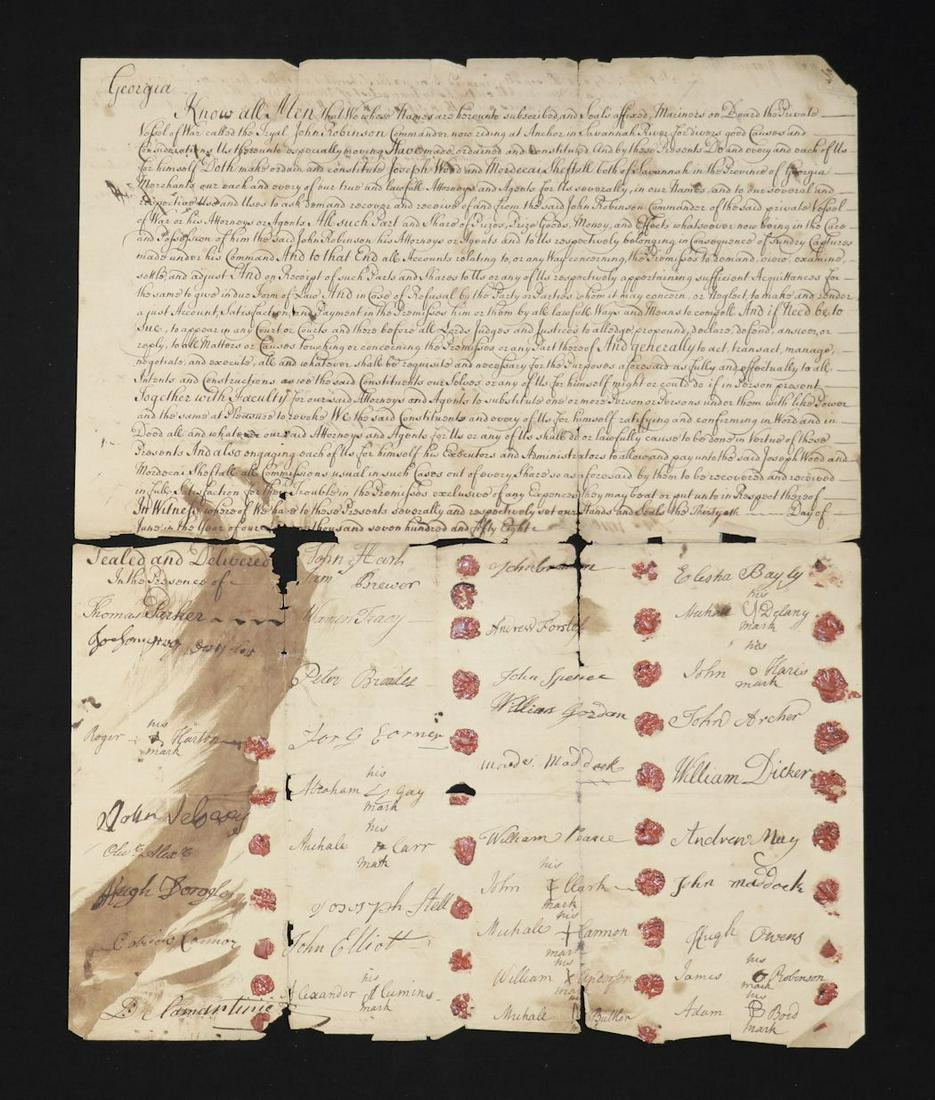 Georgia
Know all Men that We whose Names are hereunto subscribed and Seals affixed, Mariners on Board the Private
Vessel of War called the Tryal John Robinson Commander now riding at Anchor in Savannah River for divers good Causes and
Considerations Us thereunto especially moving Have made ordained and constituted And by these Presents Do and every and each of Us
for himself Doth make ordain and constitute Joseph Wood and Mordecai Sheftall both of Savannah in the Province of Georgia
Merchants our each and every of our true and lawfull Attorneys and Agents for Us severally, in our Names, and to our several and
respective Uses and Uses to ask demand recover and receive of and from the said John Robinson Commander of the said private Vessel
of War or his Attorneys or Agents All such Part and Share of Prizes, Prize Goods, Money, and Effects whatsoever now being in the Care
and Possession of him the said John Robinson his Attorneys or Agents and to Us respectively belonging in Consequence of Sundry Captures
made under his Command And to that End all Accounts relating to, or any Ways concerning, the Premisses to demand, view, examine,
settle, and adjust And on Receipt of such Parts and Shares to Us or any of Us respectively appertaining sufficient Acquittances for
the same to give in due Form of Law And in Case of Refusal by the Party or Parties whom it may concern, or Neglect, to make and render
a just Account, Satisfaction, and Payment in the Premisses him or them by all lawfull Ways and Means to compell And if Need be to
Sue, to appear in any Court or Courts and there before all Lords Judges and Justices to alledge, propound, declare, defend, answer, or
reply, to all Matters or Causes touching or concerning the Premisses or any Part thereof And generally to act, transact, manage,
negotiate, and execute, all and whatever shall be requisite and necessary for the Purposes aforesaid as fully and effectually to all
Intents and Constructions as we the said Constituents our Selves or any of Us for himself might or could do if in Person present
Together with Faculty for our said Attorneys and Agents to substitute one or more Person or Persons under them with like Power
and the same at Pleasure to revoke We the said Constituents and every of Us for himself ratifying and confirming in Word and in
Deed all and whatever our said Attorneys and Agents for Us or any of Us shall do or lawfully cause to be done in Vertue of these
Presents And also engaging each of Us for himself his Executors and Administrators to allow and pay unto the said Joseph Wood and
Mordecai Sheftall all Commissions usual in such Cases out of every Share so as aforesaid by them to be recovered and received
in full Satisfaction for their Trouble in the Premisses exclusive of any Expences they may be at or put unto in Respect thereof
In Witness whereof We have to these Presents severally and respectively set our Hands and Seals the Thirtyeth Day of
June in the Year of our thousand seven hundred and fifty Eight
Sealed and Delivered
In the Presence of
Thomas Parker
Roger his mark Harton
John
Hugh
Connor
John Hart
Brewer
Warren Tracy
Peter
Abraham his mark Gay
Michale his mark Carr
Joseph Stell
John Elliott
Alexander his mark Cumins
John
Andrew Forster
John Spence
William Gordon
Maddock
William Pearce
John his mark Clark
Michale his mark Cannon
William his mark Anderson
Michale Butler
Elesha Bayly
Michale his mark Delany
John his mark Haris
John Archer
William Dicker
Andrew May
John Maddock
Hugh Owens
James his mark Robinson
Adam his mark Boid